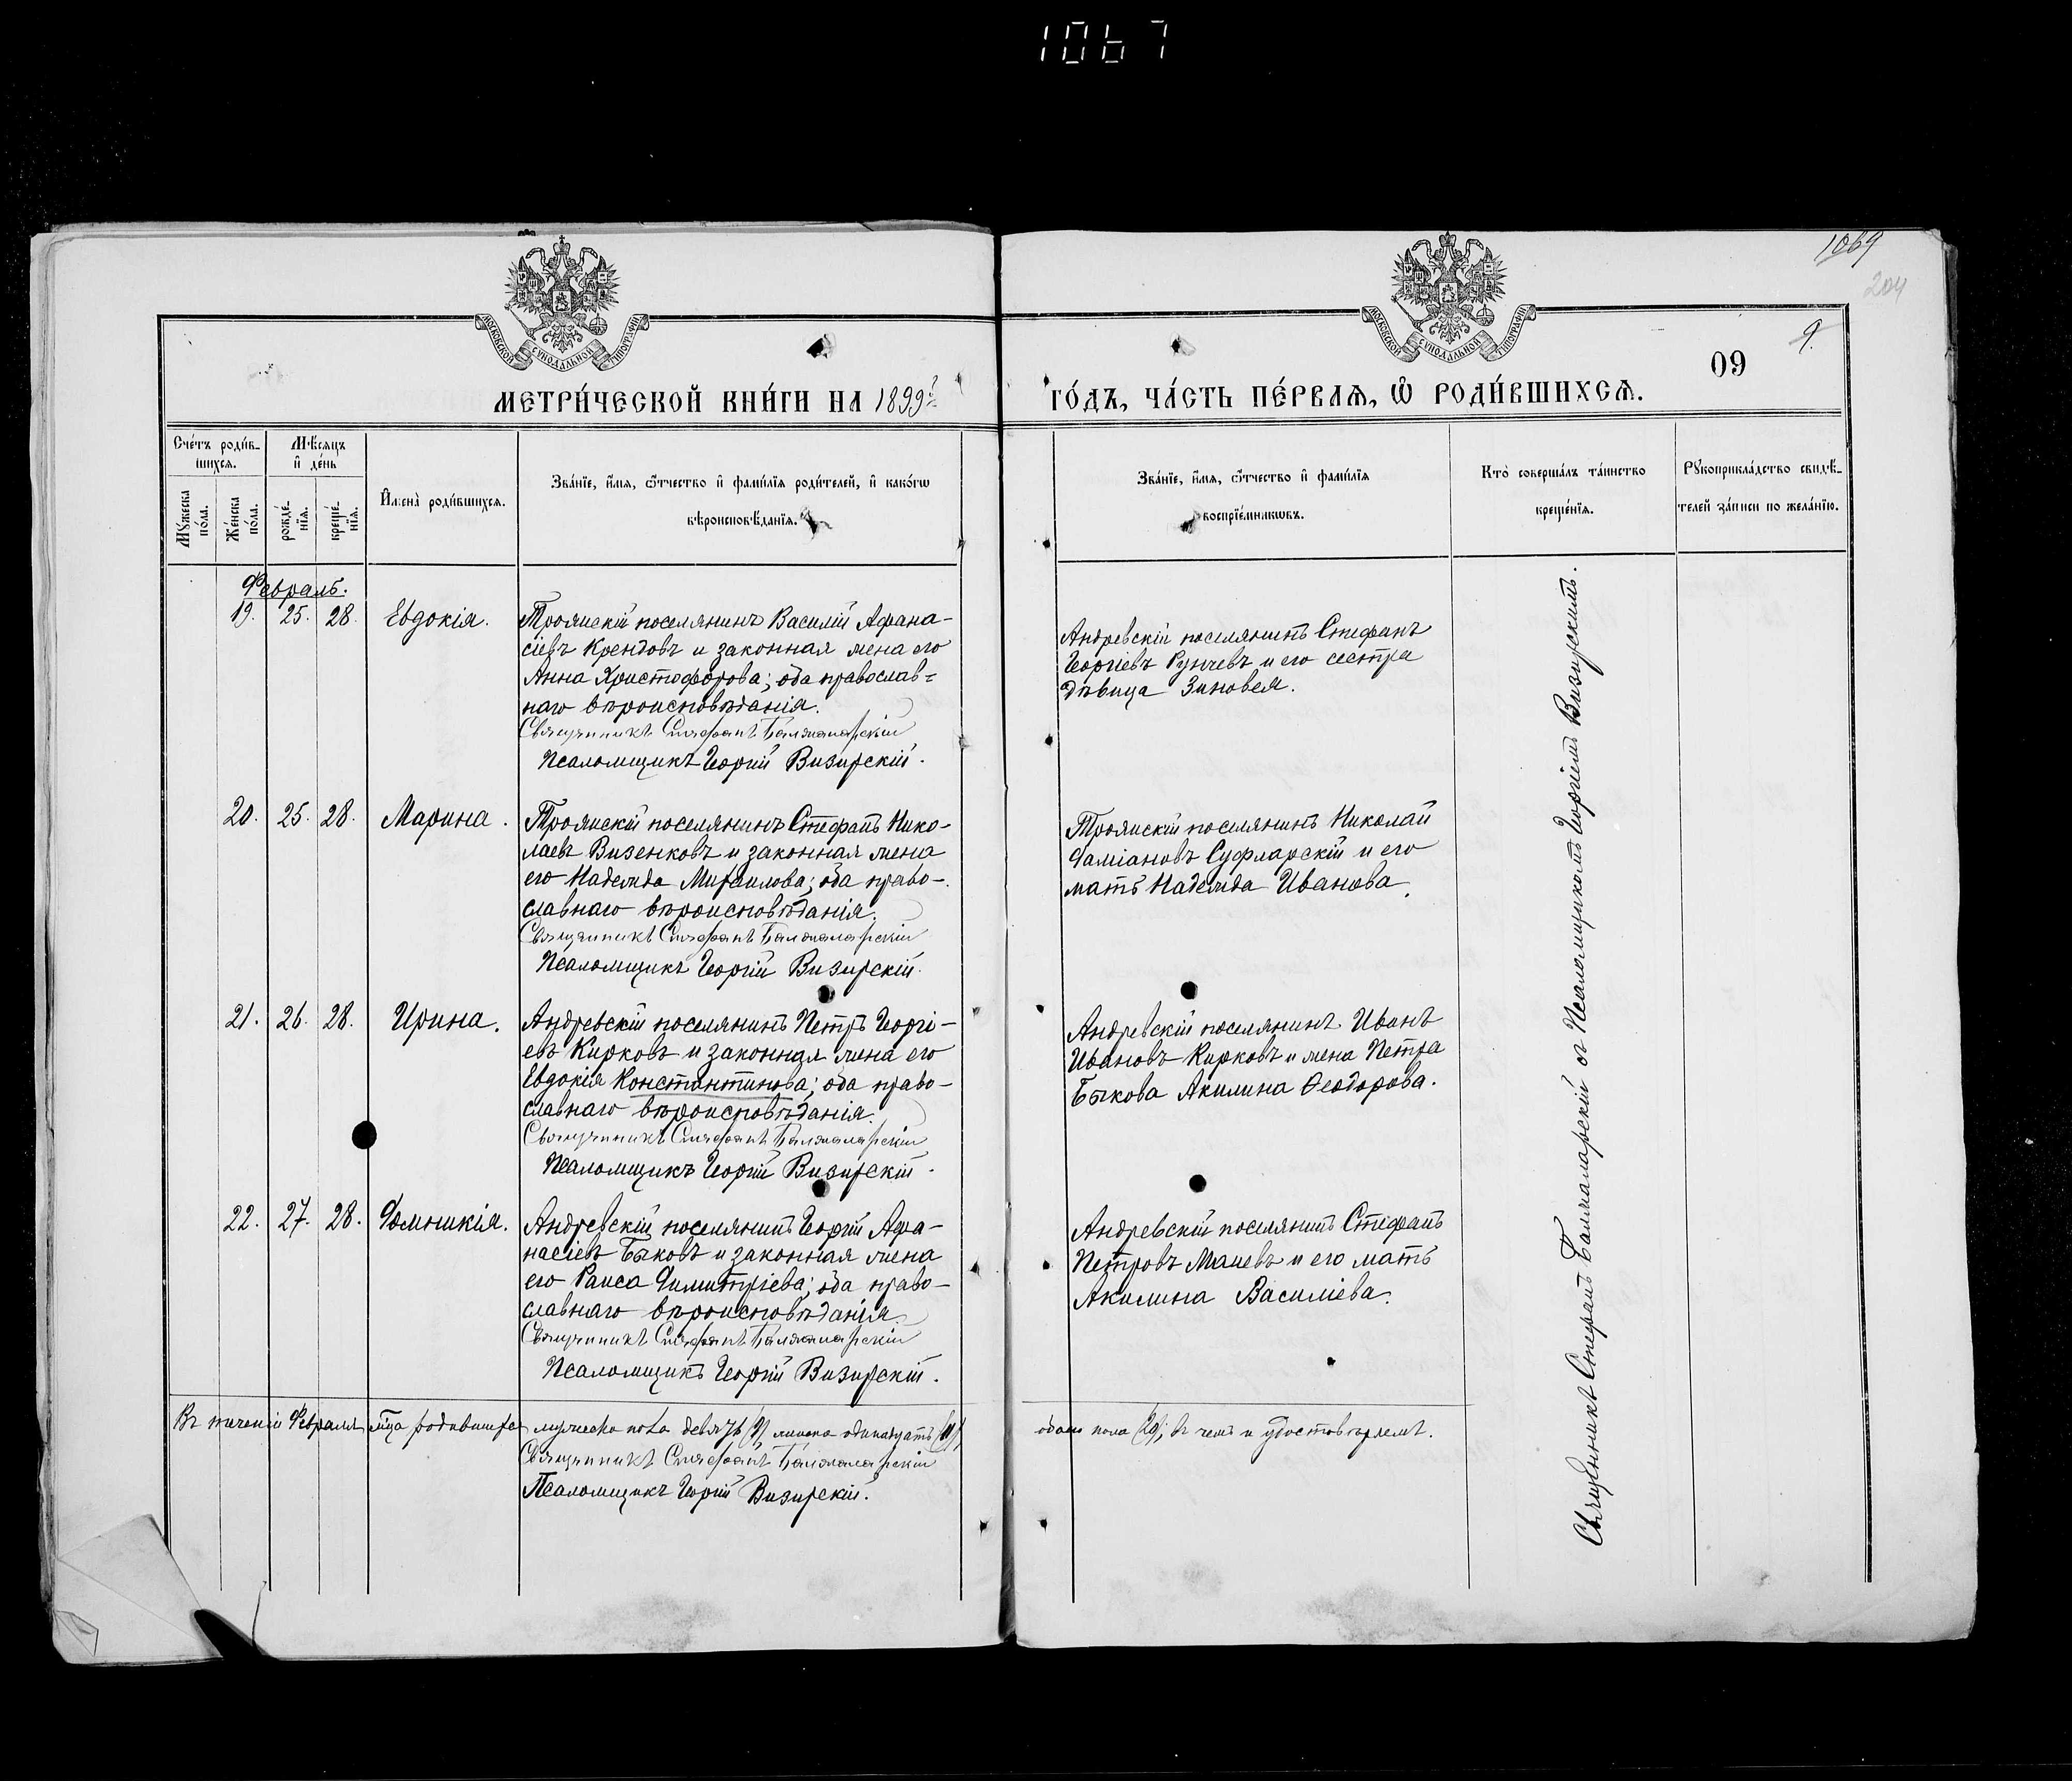 1067
1069
204
МОСКОВСКОЙ СѴНОДАЛЬНОЙ ТИПОГРАФІИ
МОСКОВСКОЙ СѴНОДАЛЬНОЙ ТИПОГРАФІИ
09
9.
МЕТРИ́ЧЕСКОЙ КНИ́ГИ НА 1899й
ГО́ДЪ, ЧА́СТЬ ПЕ́РВАѦ, Ѽ РОДИ́ВШИХСѦ.
Сче́тъ роди́в-
шихся.
Мѣ́сяцъ
и҆ де́нь
Мꙋ́жеска
по́ла.
Же́нска
по́ла.
рожде́-
нїя.
креще́-
нїя.
И҆мена̀ роди́вшихся.
Зва́нїе, и҆́мя, ѻ҆́тчество и҆ фами́лїя роди́телей, и҆ како́гѡ
вѣроисповѣ́данїя.
Зва́нїе, и҆́мя, ѻ҆́тчество и҆ фами́лїя
воспрїе́мникѡвъ.
Кто̀ соверша́лъ та́инство
креще́нїя.
Рꙋкоприкла́дство свидѣ́-
телей за́писи по жела́нїю.
Февраль.
19. 25. 28. Евдокія.
Троянскій поселянинъ Василій Афана-
сіевъ Крендовъ и законная жена его
Анна Христофорова; оба православ=
наго вѣроисповѣданія.
Священникъ Стефанъ Балжаларскій
Псаломщикъ Георгій Визирскій.
Андревскій поселянинъ Стефанъ
Георгіевъ Рунчевъ и его сестра
дѣвица Зиновея.
20. 25. 28. Марина.
Троянскій поселянинъ Стефанъ Нико-
лаевъ Визенковъ и законная жена
его Надежда Михаилова; оба право-
славнаго вѣроисповѣданія.
Священникъ Стефанъ Балжаларскій
Псаломщикъ Георгій Визирскій.
Троянскій поселянинъ Николай
Даміановъ Суфларскій и его
мать Надежда Иванова.
21. 26. 28. Ирина.
Андревскій поселянинъ Петръ Георгі-
евъ Кирковъ и законная жена его
Евдокія Константинова; оба право-
славнаго вѣроисповѣданія.
Священникъ Стефанъ Балжаларскій
Псаломщикъ Георгій Визирскій.
Андревскій поселянинъ Иванъ
Ивановъ Кирковъ и жена Петра
Быкова Акилина Ѳеодорова.
22. 27. 28. Домникія.
Андревскій поселянинъ Георгій Афа-
насіевъ Быковъ и законная жена
его Раиса Димитріева; оба право-
славнаго вѣроисповѣданія.
Священникъ Стефанъ Балжаларскій
Псаломщикъ Георгій Визирскій.
Андревскій поселянинъ Стефанъ
Петровъ Маневъ и его мать
Акилина Василіева.
Священникъ Стефанъ Балжаларскій съ Псаломщикомъ Георгіемъ Визирскимъ.
Въ теченіи Февраля мѣца родившихся мужеска пола девять (9) женска одинадцать (11),
обоего пола (20); въ чемъ и удостовѣряемъ.
Священникъ Стефанъ Балжаларскій
Псаломщикъ Георгій Визирскій.